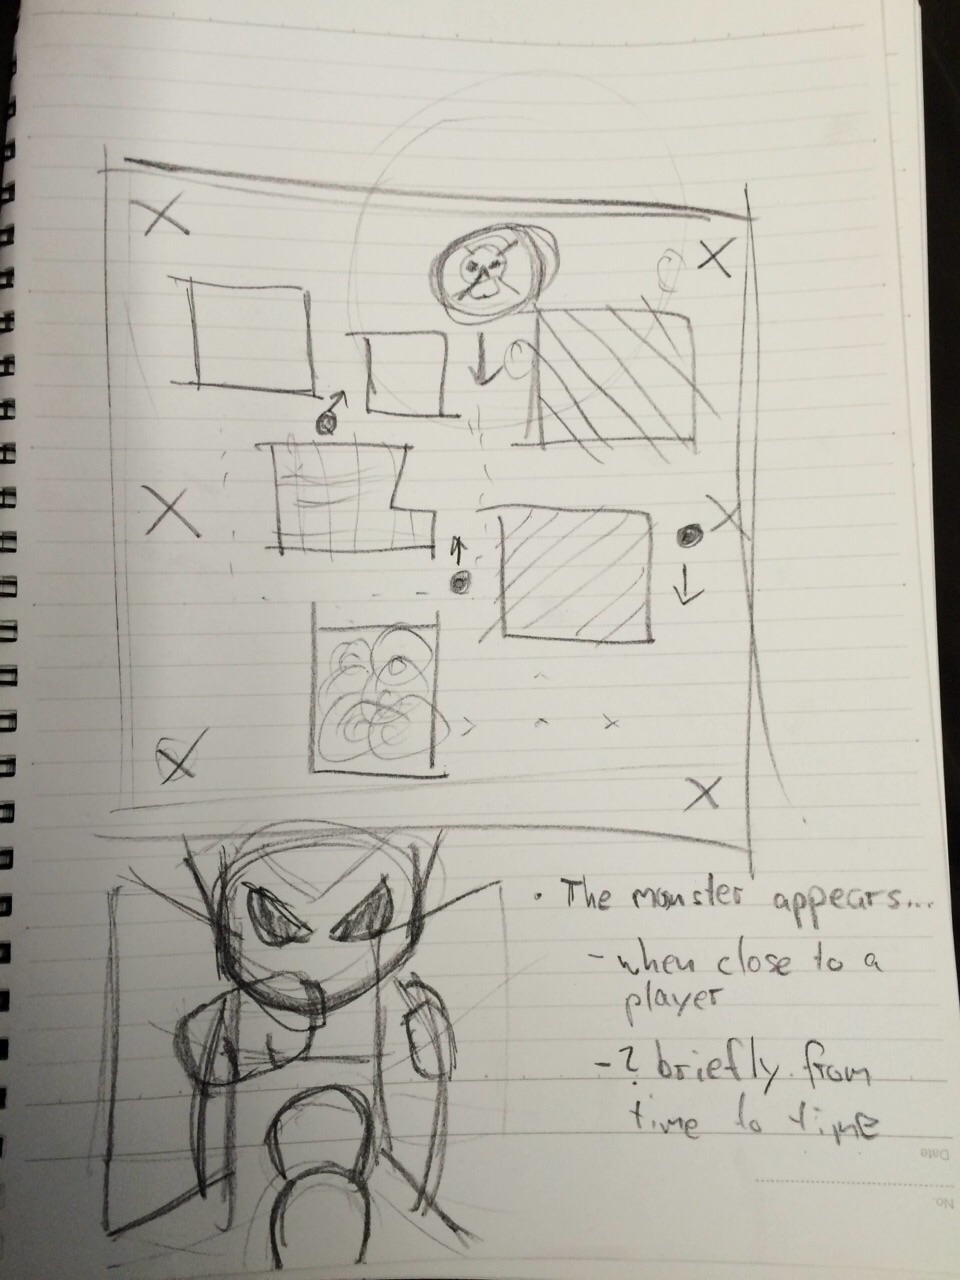 • The monster appears...
- when close to a
player
- ? briefly from
time to time
Date
No.